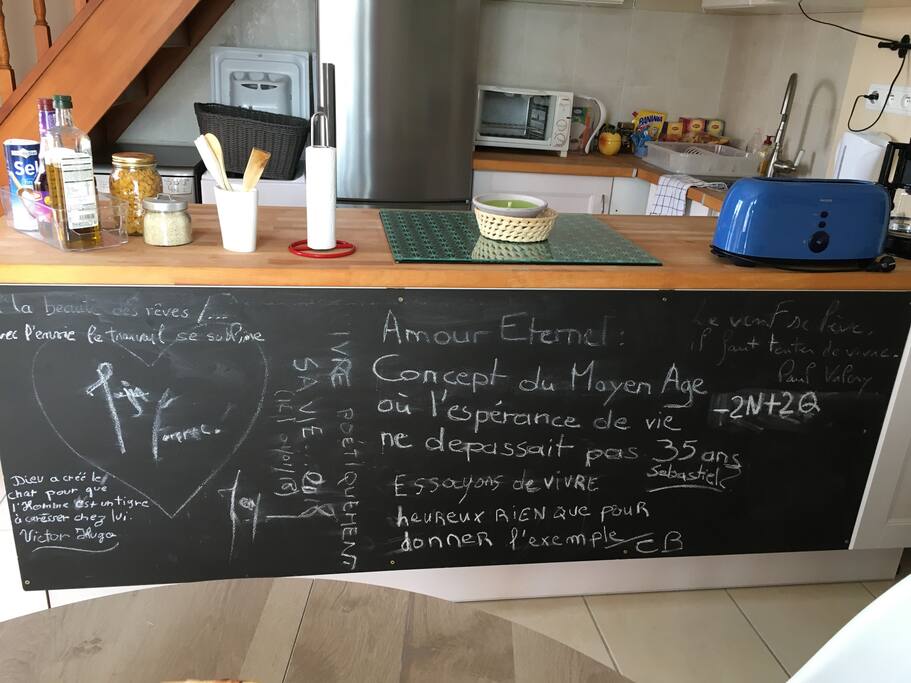 la beauté des rêves !...
avec l'envie le travail se sublime
Dieu a créé le
chat pour que
l'Homme est un tigre
à caresser chez lui.
Victor Hugo
IVRE POÉTIQUEMENT
SA VIE... OUR
Amour Eternel :
Concept du Moyen Age
où l'espérance de vie
ne depassait pas 35 ans
Sebastien
Essayons de VIVRE
heureux RIEN QUE POUR
donner l'exemple CB
Le vent se lève,
il faut tenter de vivre.
Paul Valéry
-2N+2Q
Sel
BANANIA